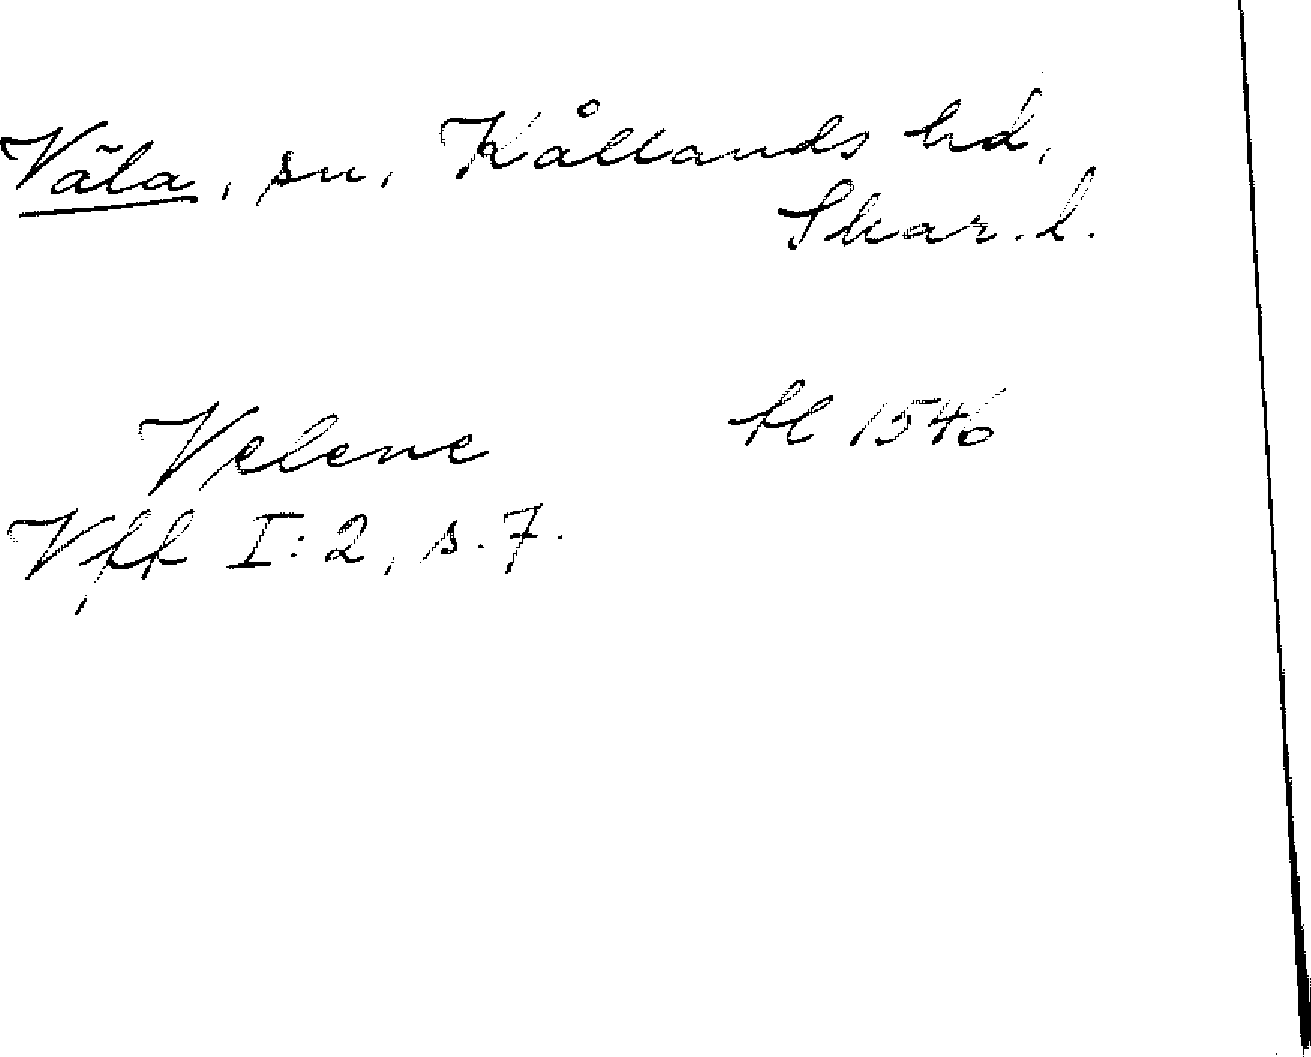 Väla, sn, Kållands hd,
Skar. l.
Velene fl 1546
Vff I:2, s. 7.